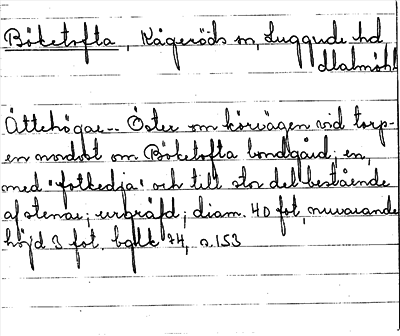 Böketofta, Kågeröds sn, Luggude hd
Malmöhl
Ättehögar -- Öster om körvägen vid torp-
en nordost om Böketofta bondgård, en,
med "fotkedja" och till stor del bestående
af stenar; urgräfd; diam. 40 fot, nuvarande
höjd 3 fot. bglk 74, s. 153